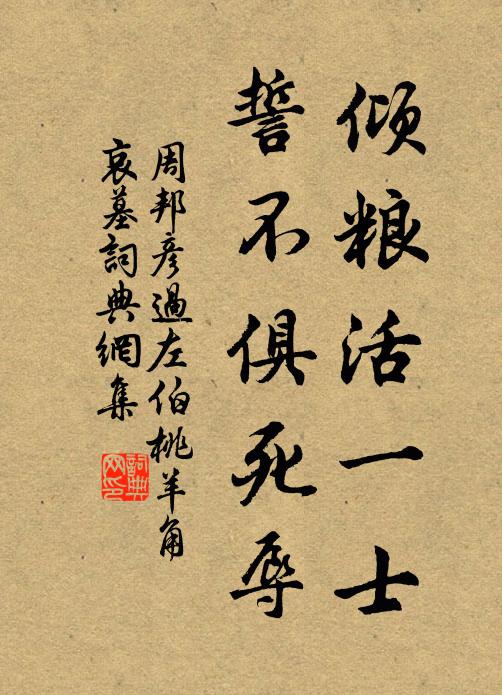 倾粮活一士
誓不俱死辱
周邦彦過左伯桃羊角
哀墓詞典網集
詞典
网印